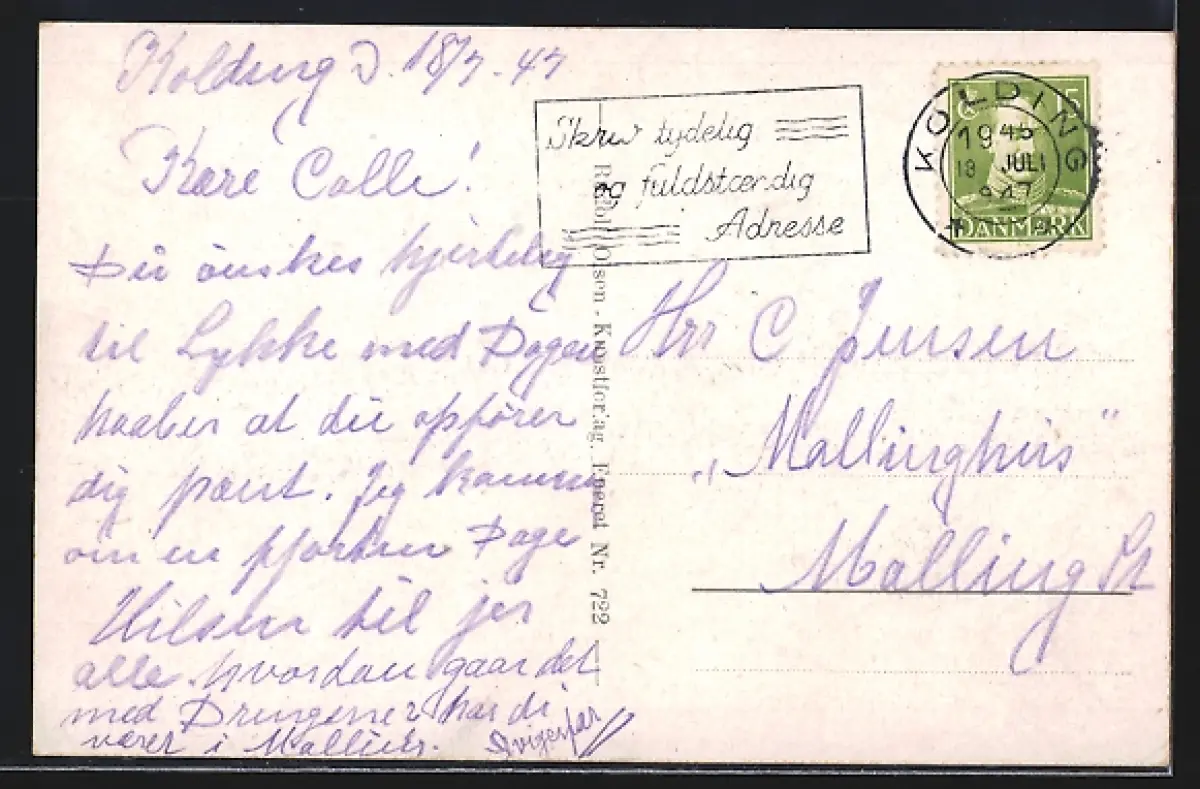 Kolding D. 18/7-47
Kære Calle!
Du ønskes hjertelig
til Lykke med Dagen
haaber at du opfører
dig pænt. Jeg kommer
om en fjorten Dage
Hilsen til jer
alle. hvordan gaar det
med Drengene har di
været i
Svigerfar
Skriv tydelig
og fuldstændig
Adresse
KOLDING
19 JULI
1947
15
DANMARK
Olsen - Kunstforlag. Eneret Nr. 722
Hrr C Jensen
„Mallinghus"
Malling St